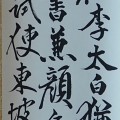 李太白猶
書兼顏
試使東坡